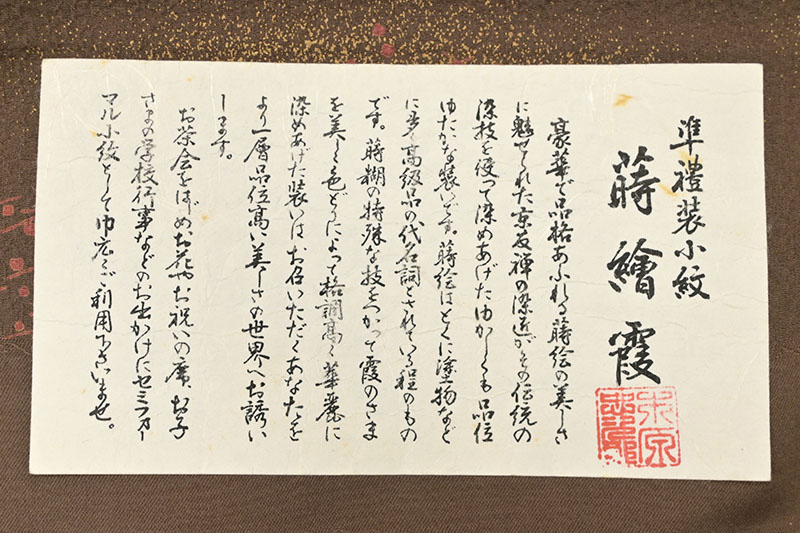 準禮装小紋
蒔繪霞
豪華で品格あふれる蒔絵の美しさ
に魅せられた京友禅の染匠がその伝統の
染技を使って染めあげたゆかしくも品位
ゆたかな装いです。蒔絵はとくに塗物など
に多く高級品の代名詞とされている程のもの
です。蒔糊の特殊な技をつかって霞のさま
を美しく色どりによって格調高く華麗に
染めあげた装いはお召いただくあなたを
より一層品位高い美しさの世界へお誘い
します。
お茶会をはじめお花やお祝いの席、お子
さまの学校行事などのお出かけにセミフォー
マル小紋として巾広くご利用下さいませ。